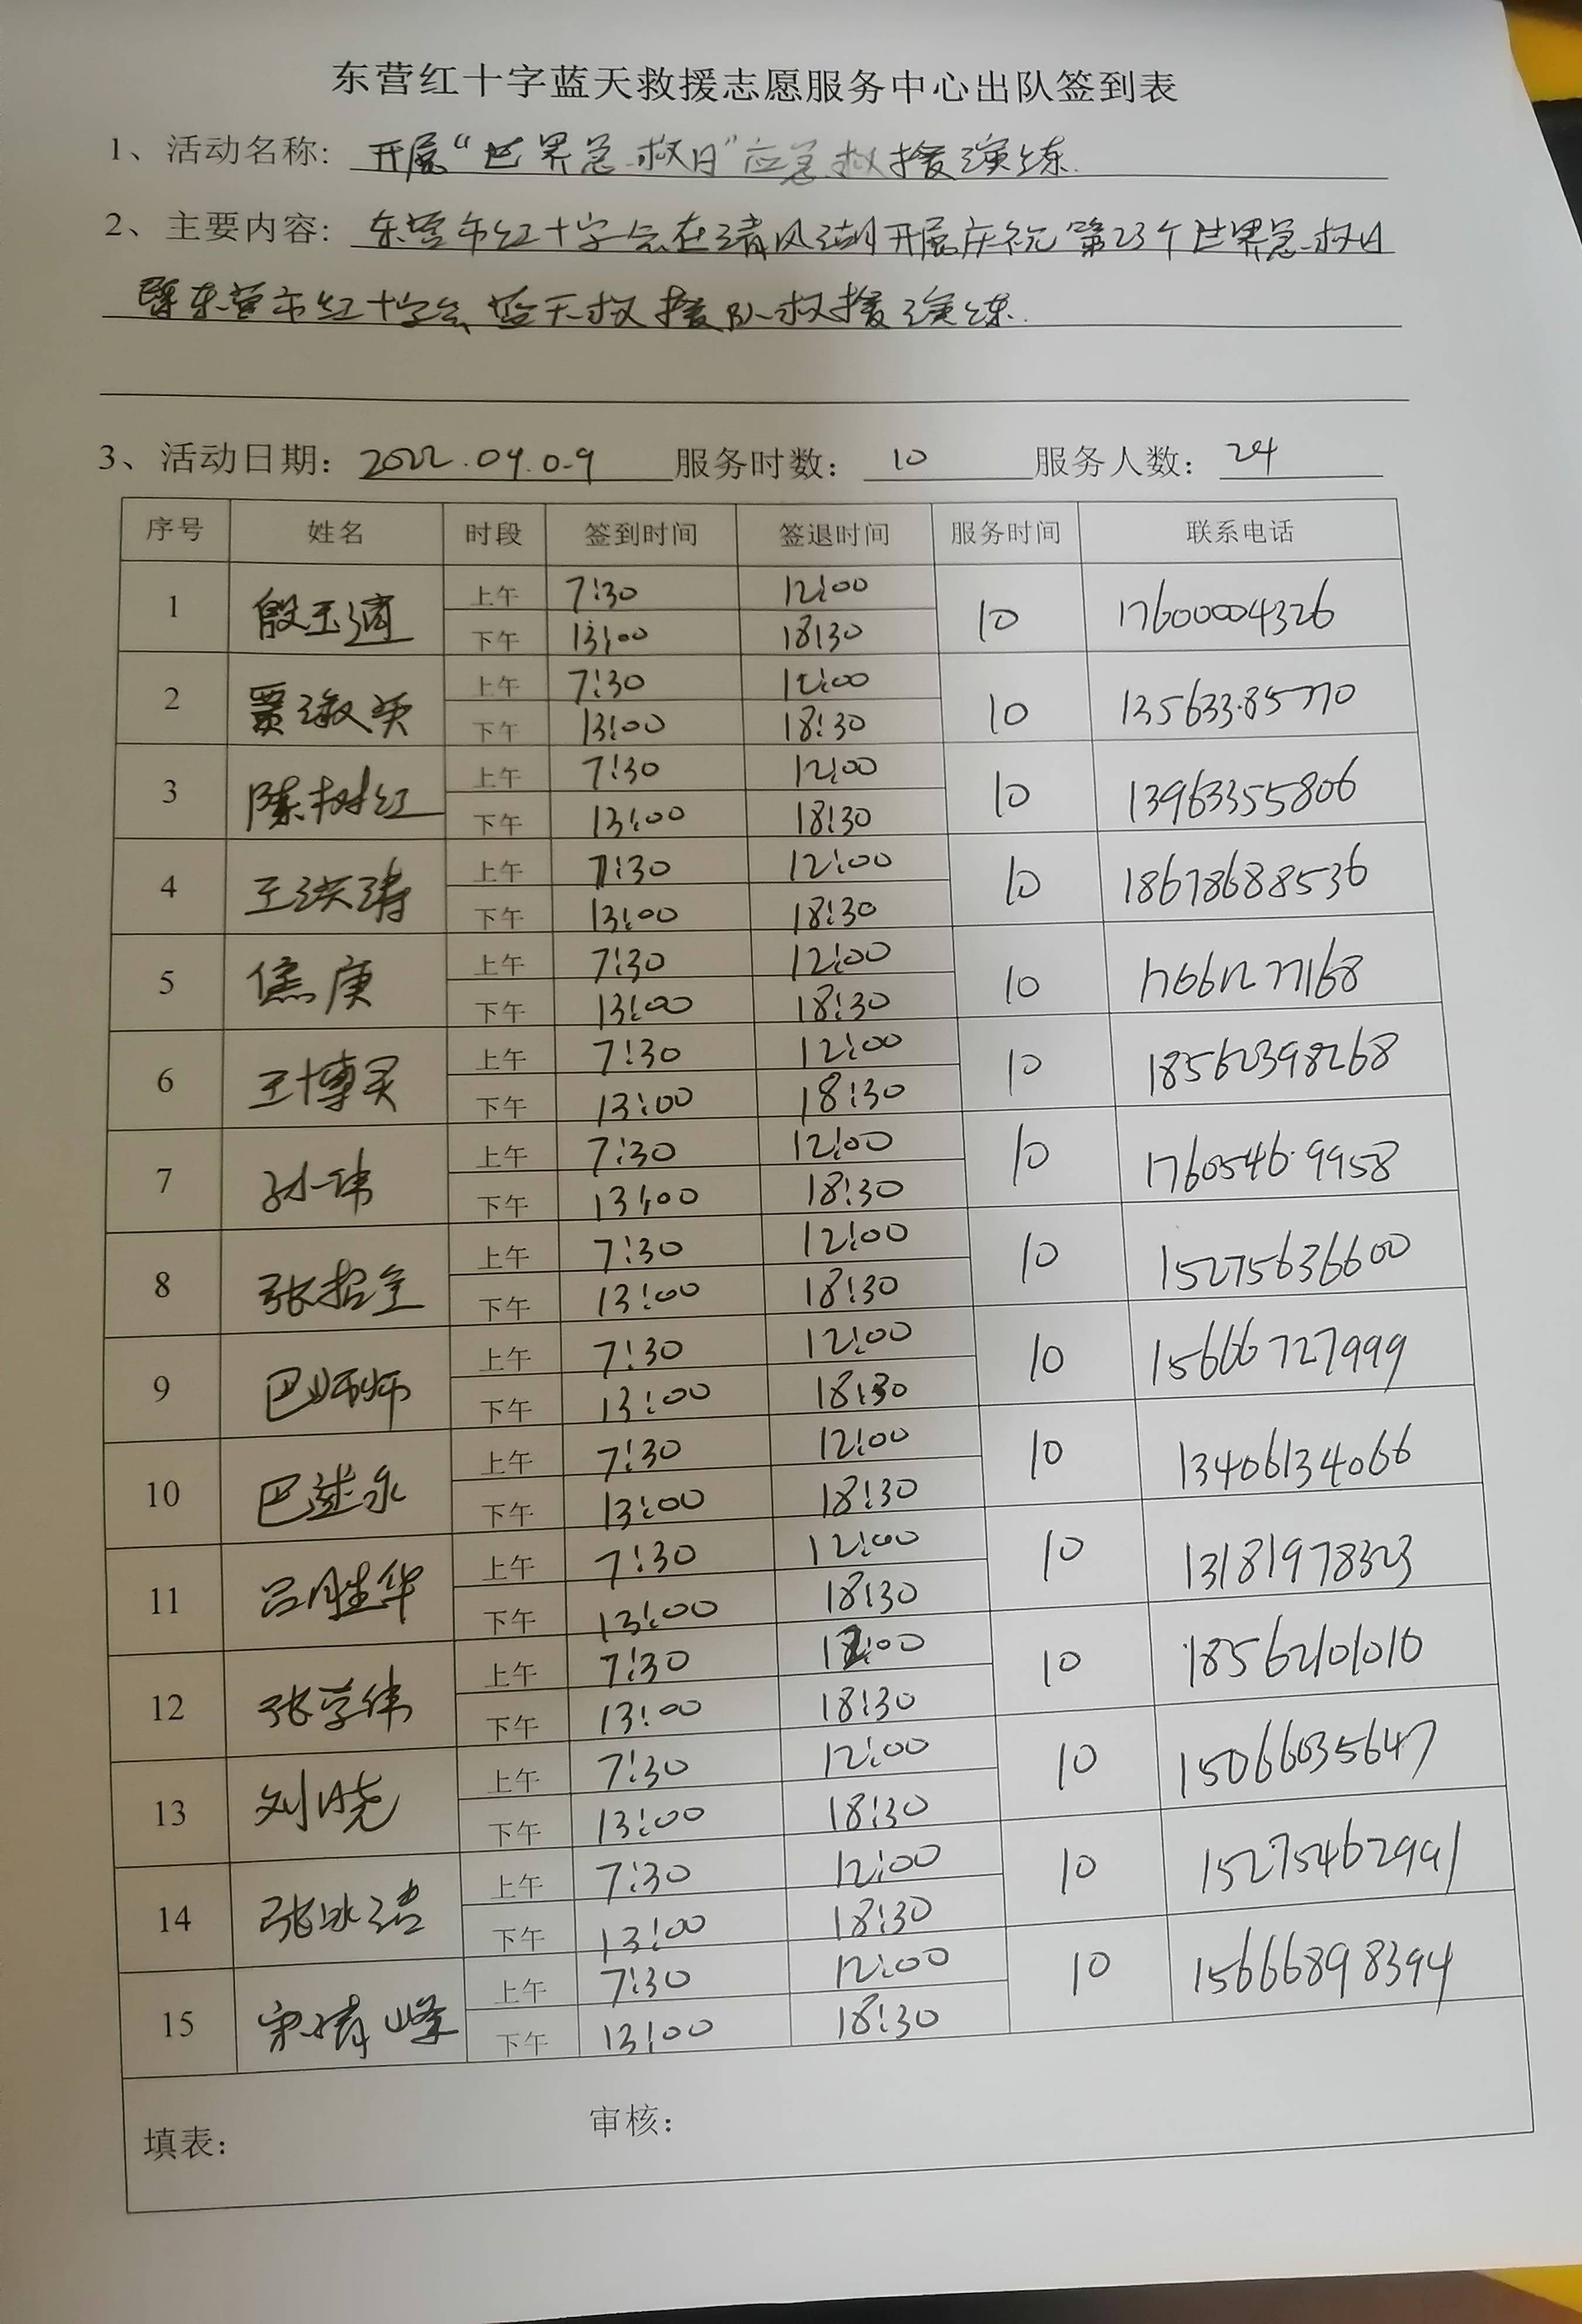 东营红十字蓝天救援志愿服务中心出队签到表
1、活动名称: 开展“世界急救日”应急救援演练.
2、主要内容: 东营市红十字会在清风湖开展庆祝第23个世界急救日
暨东营市红十字会蓝天救援队救援演练.
3、活动日期: 2022.09.0.9 服务时数: 10 服务人数: 24
序号 姓名 时段 签到时间 签退时间 服务时间 联系电话
1 殷玉 上午 7:30 12:00 10 17600004326
下午 13:00 18:30
2 贾 上午 7:30 12:00 10 13563385770
下午 13:00 18:30
3 陈树红 上午 7:30 12:00 10 13963355806
下午 13:00 18:30
4 王洪涛 上午 7:30 12:00 10 18678688536
下午 13:00 18:30
5 焦庚 上午 7:30 12:00 10 17661277168
下午 13:00 18:30
6 王博 上午 7:30 12:00 10 18562398268
下午 13:00 18:30
7 孙伟 上午 7:30 12:00 10 1760546.9958
下午 13:00 18:30
8 张招全 上午 7:30 12:00 10 15275636600
下午 13:00 18:30
9 巴师师 上午 7:30 12:00 10 15666727999
下午 13:00 18:30
10 巴进永 上午 7:30 12:00 10 13406134066
下午 13:00 18:30
11 吕胜华 上午 7:30 12:00 10 13181978323
下午 13:00 18:30
12 张学伟 上午 7:30 12:00 10 18562101010
下午 13:00 18:30
13 刘晓 上午 7:30 12:00 10 15066035647
下午 13:00 18:30
14 张冰洁 上午 7:30 12:00 10 15275462991
下午 13:00 18:30
15 宋靖峰 上午 7:30 12:00 10 15666898394
下午 13:00 18:30
填表: 审核: